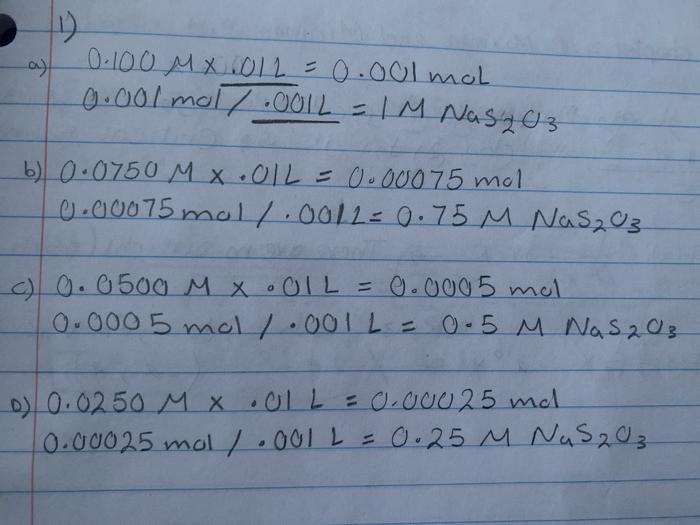 1)
a) 0.100 M x .01L = 0.001 mol
0.001 mol / .001L = 1 M NaS₂O₃
b) 0.0750 M x .01L = 0.00075 mol
0.00075 mol / .001L = 0.75 M NaS₂O₃
c) 0.0500 M x .01 L = 0.0005 mol
0.0005 mol / .001 L = 0.5 M NaS₂O₃
D) 0.0250 M x .01 L = 0.00025 mol
0.00025 mol / .001 L = 0.25 M NaS₂O₃